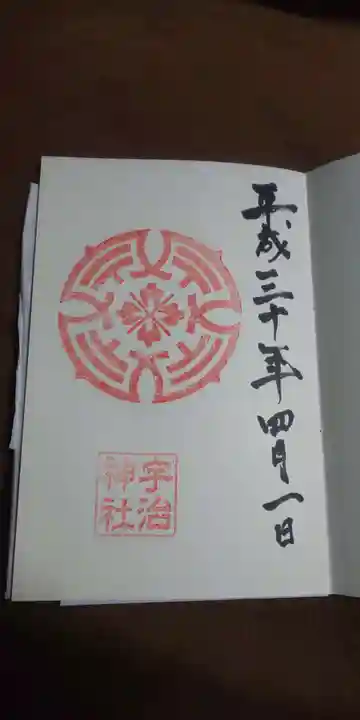 平成三十年四月一日
宇治
神社